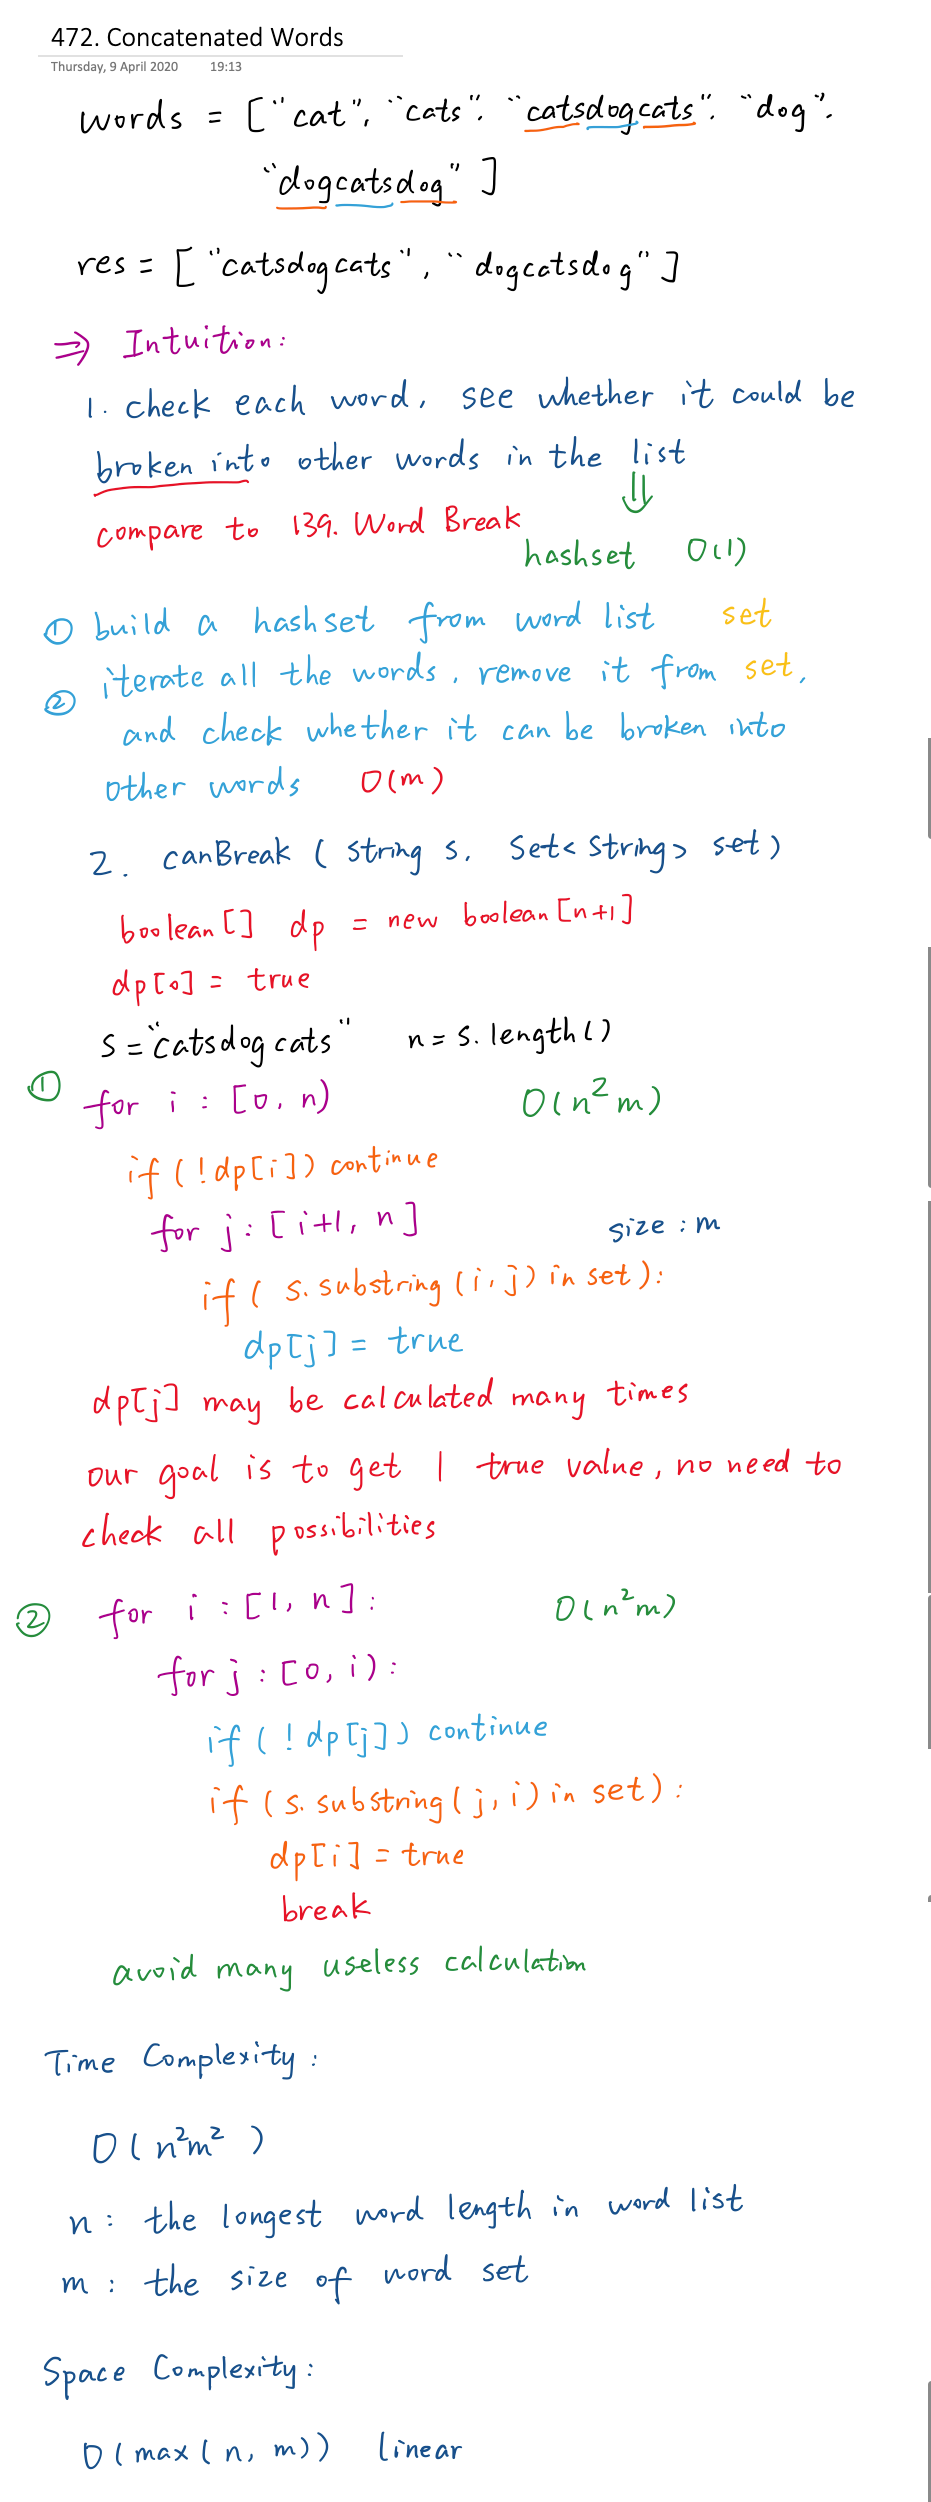 472. Concatenated Words
Thursday, 9 April 2020 19:13
words = ["cat", "cats", "catsdogcats", "dog",
"dogcatsdog"]
res = ["catsdogcats", "dogcatsdog"]
⇒ Intuition:
1. check each word, see whether it could be
broken into other words in the list
compare to 139. Word Break
hashset O(1)
① build a hashset from word list set
② iterate all the words, remove it from set,
and check whether it can be broken into
other words O(m)
2. canBreak (String s, Set<String> set)
boolean[] dp = new boolean[n+1]
dp[0] = true
s = "catsdogcats" n = s.length()
① for i : [0, n) O(n²m)
if (!dp[i]) continue
for j : [i+1, n] size : m
if ( s.substring (i, j) in set ):
dp[j] = true
dp[j] may be calculated many times
our goal is to get 1 true value, no need to
check all possibilities
② for i : [1, n] : O(n²m)
for j : [0, i) :
if ( ! dp[j]) continue
if (s.substring(j, i) in set) :
dp[i] = true
break
avoid many useless calculation
Time Complexity :
O(n²m²)
n : the longest word length in word list
m : the size of word set
Space Complexity :
O(max(n, m)) linear